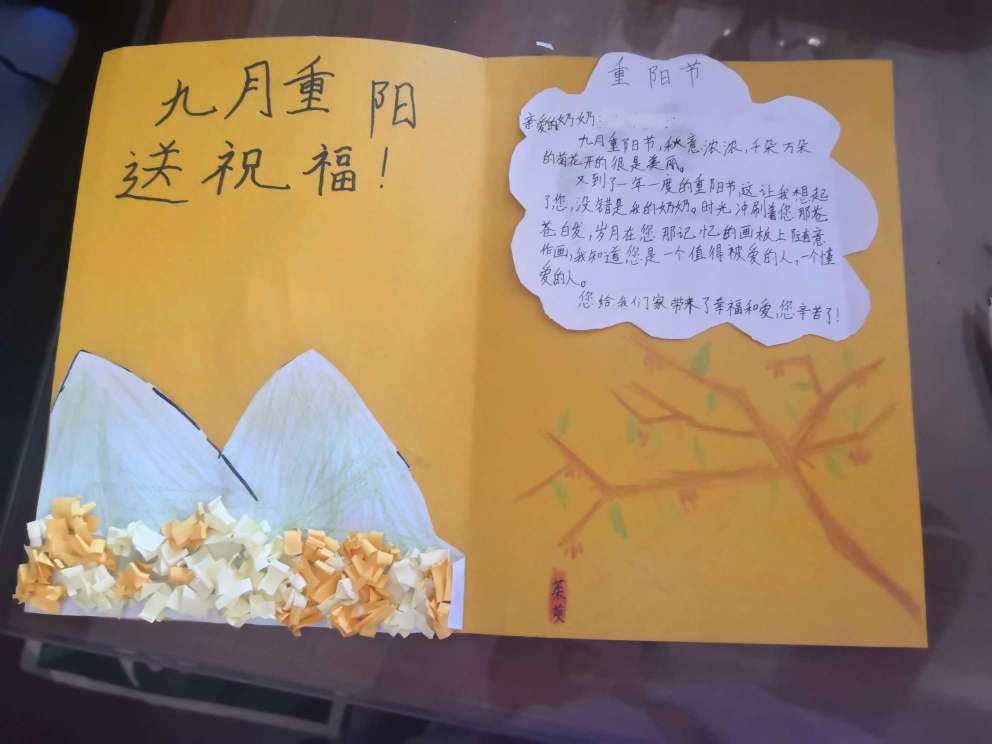 九月重阳
送祝福!
重阳节
亲爱的奶奶:
九月重阳节,秋意浓浓,千朵万朵
的菊花开的很是美丽。
又到了一年一度的重阳节,这让我想起
了您,没错是我的奶奶。时光冲刷着您那苍
苍白发,岁月在您那记忆的画板上随意
作画,我知道您是一个值得被爱的人,一个懂
爱的人。
您给我们家带来了幸福和爱,您辛苦了!
茱萸